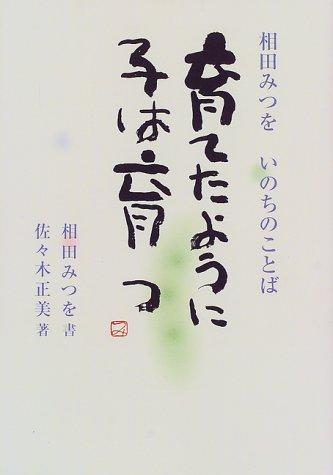 相田みつを いのちのことば
育てたように
子は育つ
相田みつを 書
佐々木正美 著